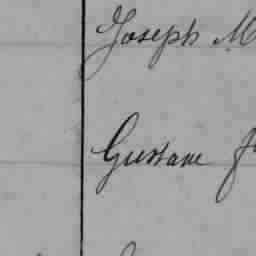 Joseph M
Gustave